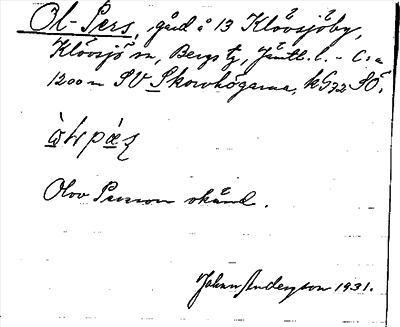 Ol-Pers, gård å 13 Klövsjöby,
Klövsjö sn, Bergs tg, Jämtl. l. - C:a
1200 m SV Skorvhögarna, kG32 SÖ.
Olov Persson okänd.
Johan Anderzson 1931.